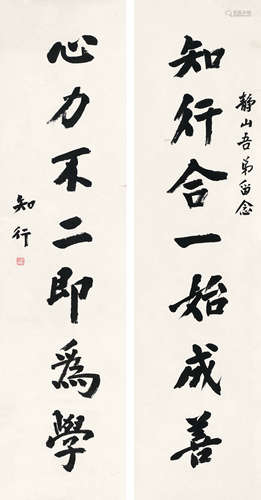 静山吾弟留念
知行合一始成善
心力不二即為學
知行